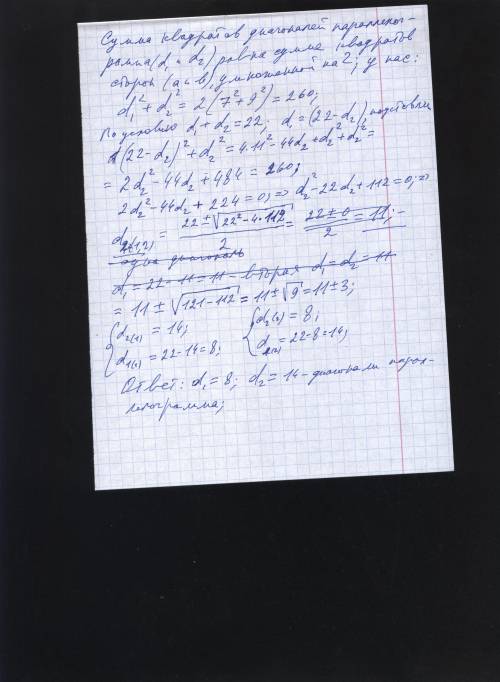 Сумма квадратов диагоналей параллелог-
рамма (d₁ и d₂) равна сумме квадратов
сторон (a и b), умноженной на 2; у нас:
d₁² + d₂² = 2(7² + 9²) = 260;
По условию d₁ + d₂ = 22; d₁ = (22 - d₂), подставим
(22 - d₂)² + d₂² = 4·11² - 44d₂ + d₂² + d₂² =
= 2d₂² - 44d₂ + 484 = 260;
2d₂² - 44d₂ + 224 = 0; => d₂² - 22d₂ + 112 = 0; =>
d₂(1,2) = (22 ± √(22² - 4·112))/2 = (22 ± 0)/2 = 11; -
одна диагональ
d₁ = 22 - 11 = 11 - вторая d₁ = d₂ = 11
= 11 ± √(121 - 112) = 11 ± √9 = 11 ± 3;
{d₂(1) = 14; {d₂(2) = 8;
d₁(1) = 22 - 14 = 8; d₁(2) = 22 - 8 = 14;
Ответ: d₁ = 8; d₂ = 14 - диагонали парал-
лелограмма;